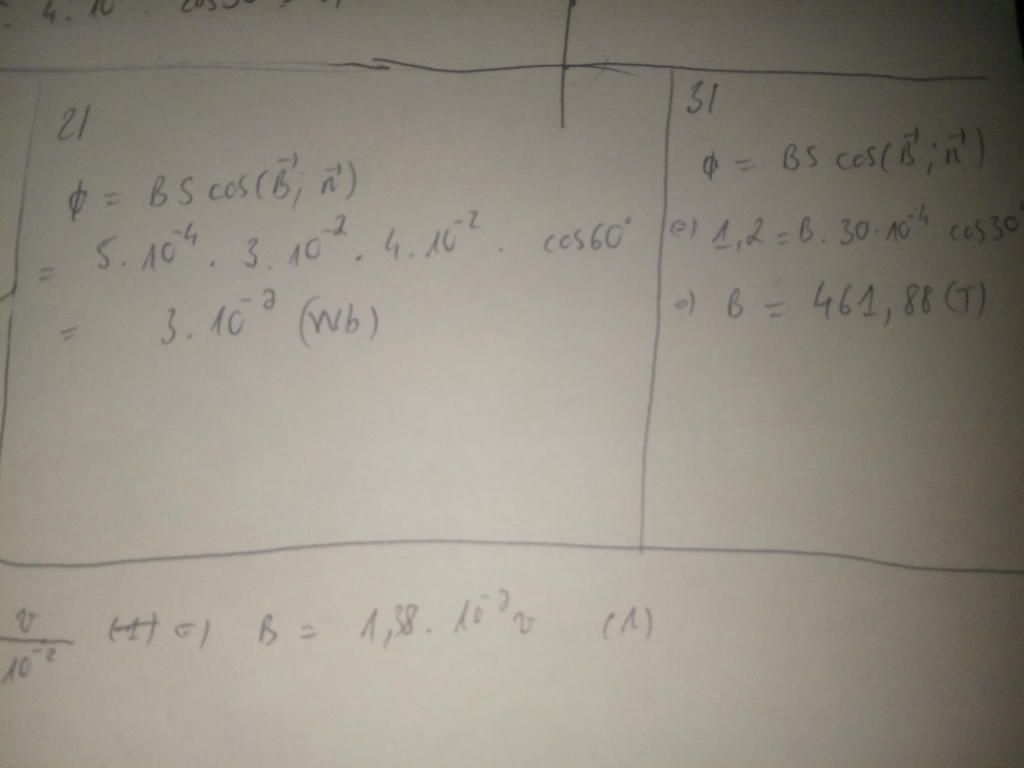 4. 10
2/
ϕ = BS cos(B⃗; n⃗)
= 5.10⁻⁴ . 3.10⁻² . 4.10⁻² . cos60°
= 3.10 (Wb)
3/
ϕ = BS cos(B⃗; n⃗)
1,2 = B. 30.10⁻⁴ cos30°
B = 461,88 (T)
v
10⁻²
B = 1,38. 10 v (1)